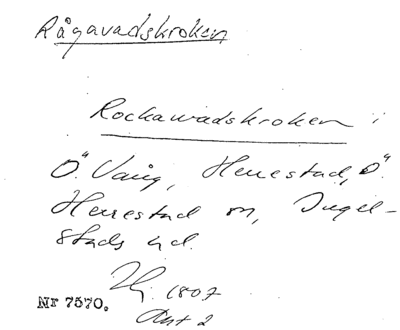 Rågavadskroken
Rockawadskroken i
Ö. Vång, Herrestad, Ö.
Herrestad sn, Ingel-
stads hd.
1807
Akt 2
Nr 7570.